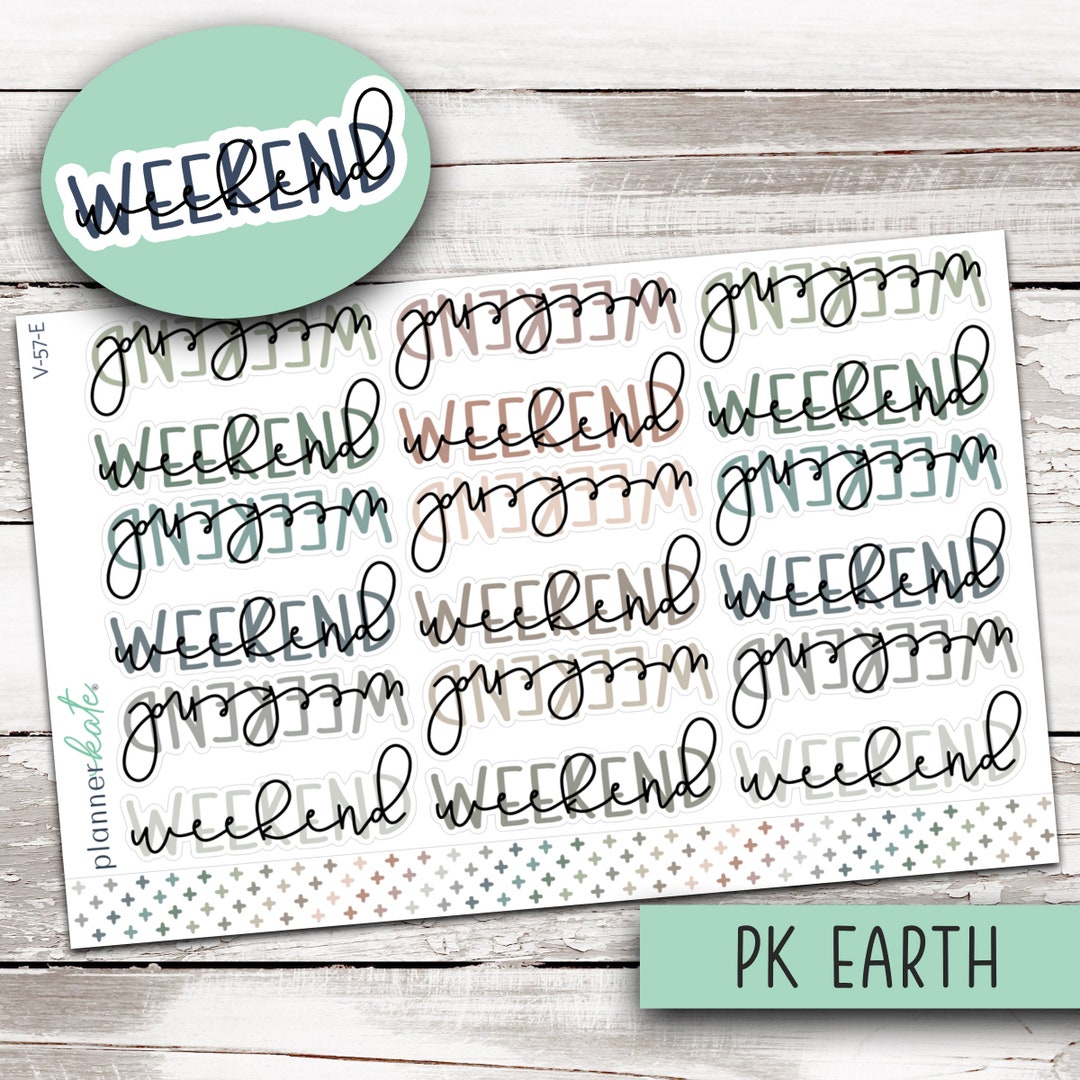 WEEKEND weekend
V-57-E
WEEKEND weekend WEEKEND weekend WEEKEND weekend
WEEKEND weekend WEEKEND weekend WEEKEND weekend
WEEKEND weekend WEEKEND weekend WEEKEND weekend
WEEKEND weekend WEEKEND weekend WEEKEND weekend
WEEKEND weekend WEEKEND weekend WEEKEND weekend
WEEKEND weekend WEEKEND weekend WEEKEND weekend
plannerkate®
PK EARTH